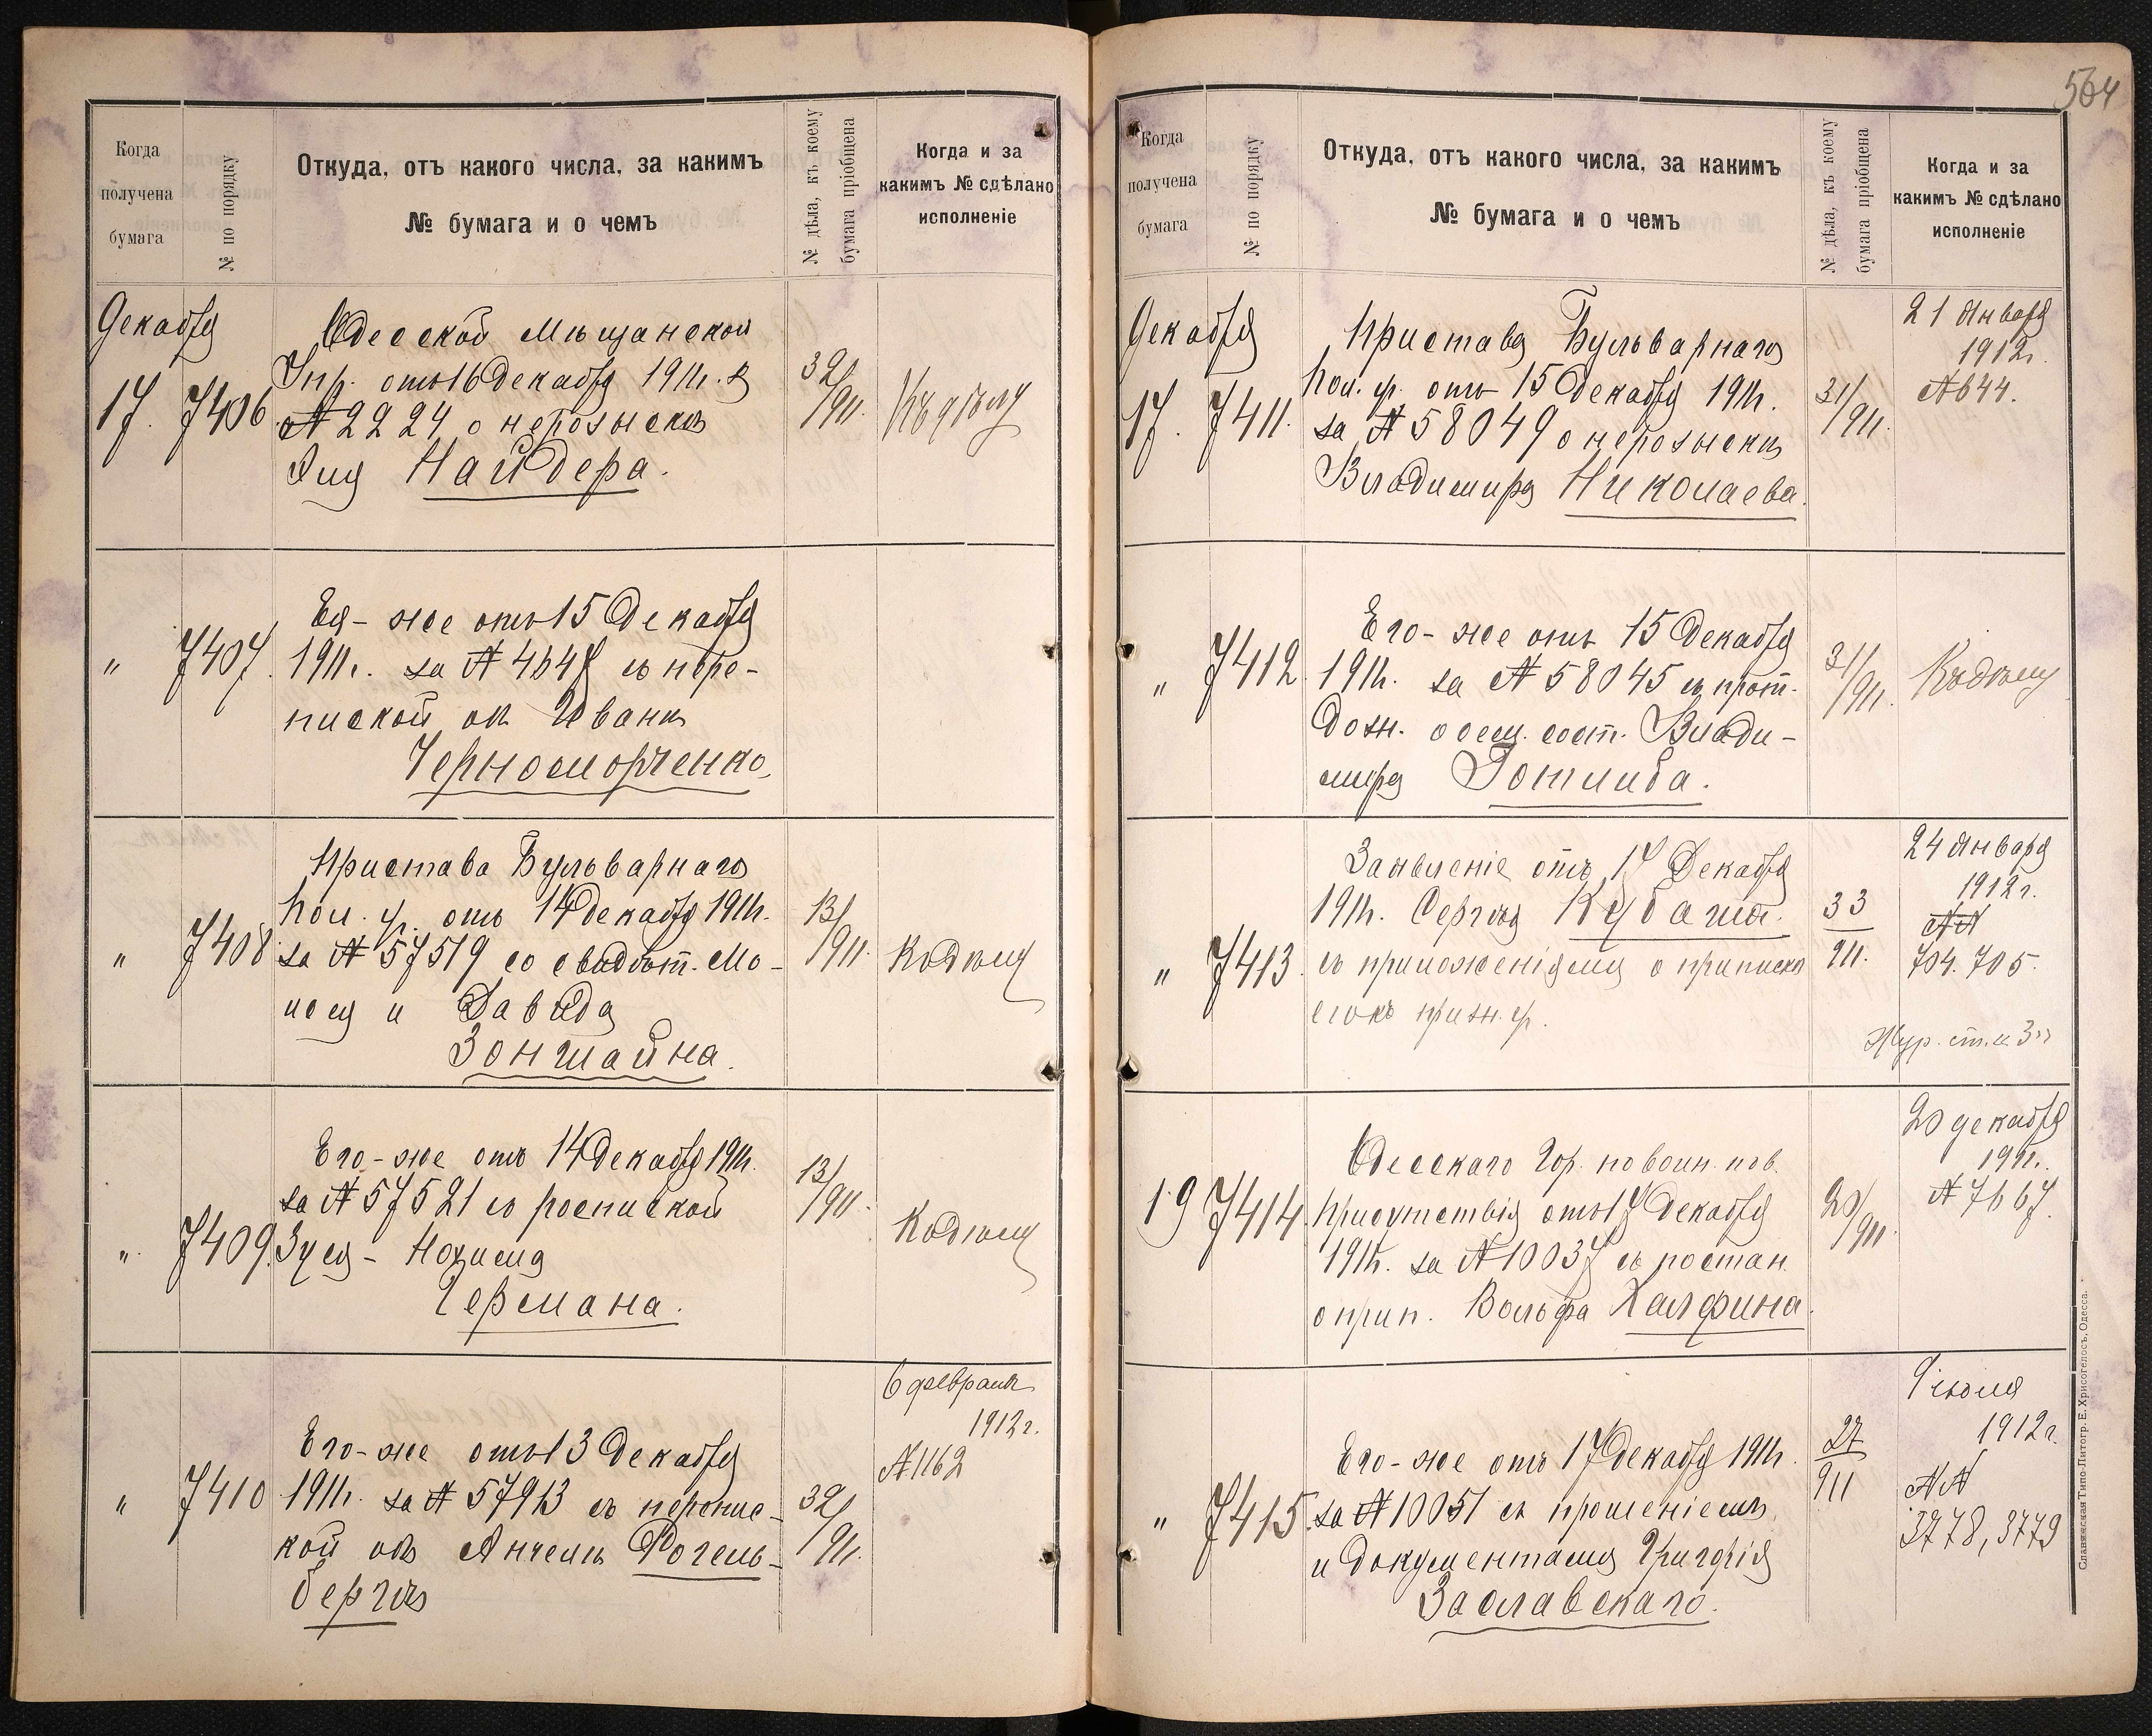 564
Когда
получена
бумага
№ по порядку
Откуда, отъ какого числа, за какимъ
№ бумага и о чемъ
№ дѣла, къ коему
бумага пріобщена
Когда и за
какимъ № сдѣлано
исполненіе
Декабря
17. 7406.
Одесской Мѣщанской
Упр. отъ 16 Декабря 1911г. за
№ 2224 о нерозыскѣ
Яна Найдера.
32/911.
Къ дѣлу
" 7407.
Ея-же отъ 15 Декабря
1911г. за № 4647 съ пере-
пиской объ Иванѣ
Черноморченко.
" 7408
Пристава Бульварнаго
пол. уч. отъ 14 Декабря 1911г.
за № 57519 со свидѣт. Мо-
исея и Давида
Зоншайна.
13/911.
Къ дѣлу
" 7409.
Его-же отъ 14 Декабря 1911г.
за № 57521 съ роспиской
Зуся-Нохима
Германа.
13/911.
Къ дѣлу
" 7410
Его-же отъ 13 Декабря
1911г. за № 57913 съ перепис-
кой объ Анчелѣ Фогель-
бергѣ
32/911.
6 февраля
1912г.
№ 1162
Когда
получена
бумага
№ по порядку
Откуда, отъ какого числа, за какимъ
№ бумага и о чемъ
№ дѣла, къ коему
бумага пріобщена
Когда и за
какимъ № сдѣлано
исполненіе
Декабря
17. 7411.
Пристава Бульварнаго
пол. уч. отъ 15 Декабря 1911г.
за № 58049 о нерозыскѣ
Владимира Николаева.
31/911.
21 Января
1912г.
№ 644.
" 7412.
Его-же отъ 15 Декабря
1911г. за № 58045 съ прот.
дозн. о сем. сост. Влади-
мира Готлиба.
31/911.
Къ дѣлу
" 7413.
Заявленіе отъ 17 Декабря
1911г. Сергѣя
съ приложеніями о припискѣ
его къ приз. уч.
33/911.
24 Января
1912г.
№№
704. 705.
Жур. ст.
19 7414.
Одесскаго Гор. по воин. пов.
присутствія отъ 17 Декабря
1911г. за № 10037 съ постан.
о прип. Вольфа Халфина.
20/911.
20 декабря
1911г.
№ 7667.
" 7415.
Его-же отъ 17 Декабря 1911г.
за № 10051 съ прошеніемъ
и документами Григорія
Заславскаго.
27/911
9 іюля
1912г.
№№
3778, 3779
Славянская Типо-Литогр. Е. Хрисогелосъ, Одесса.